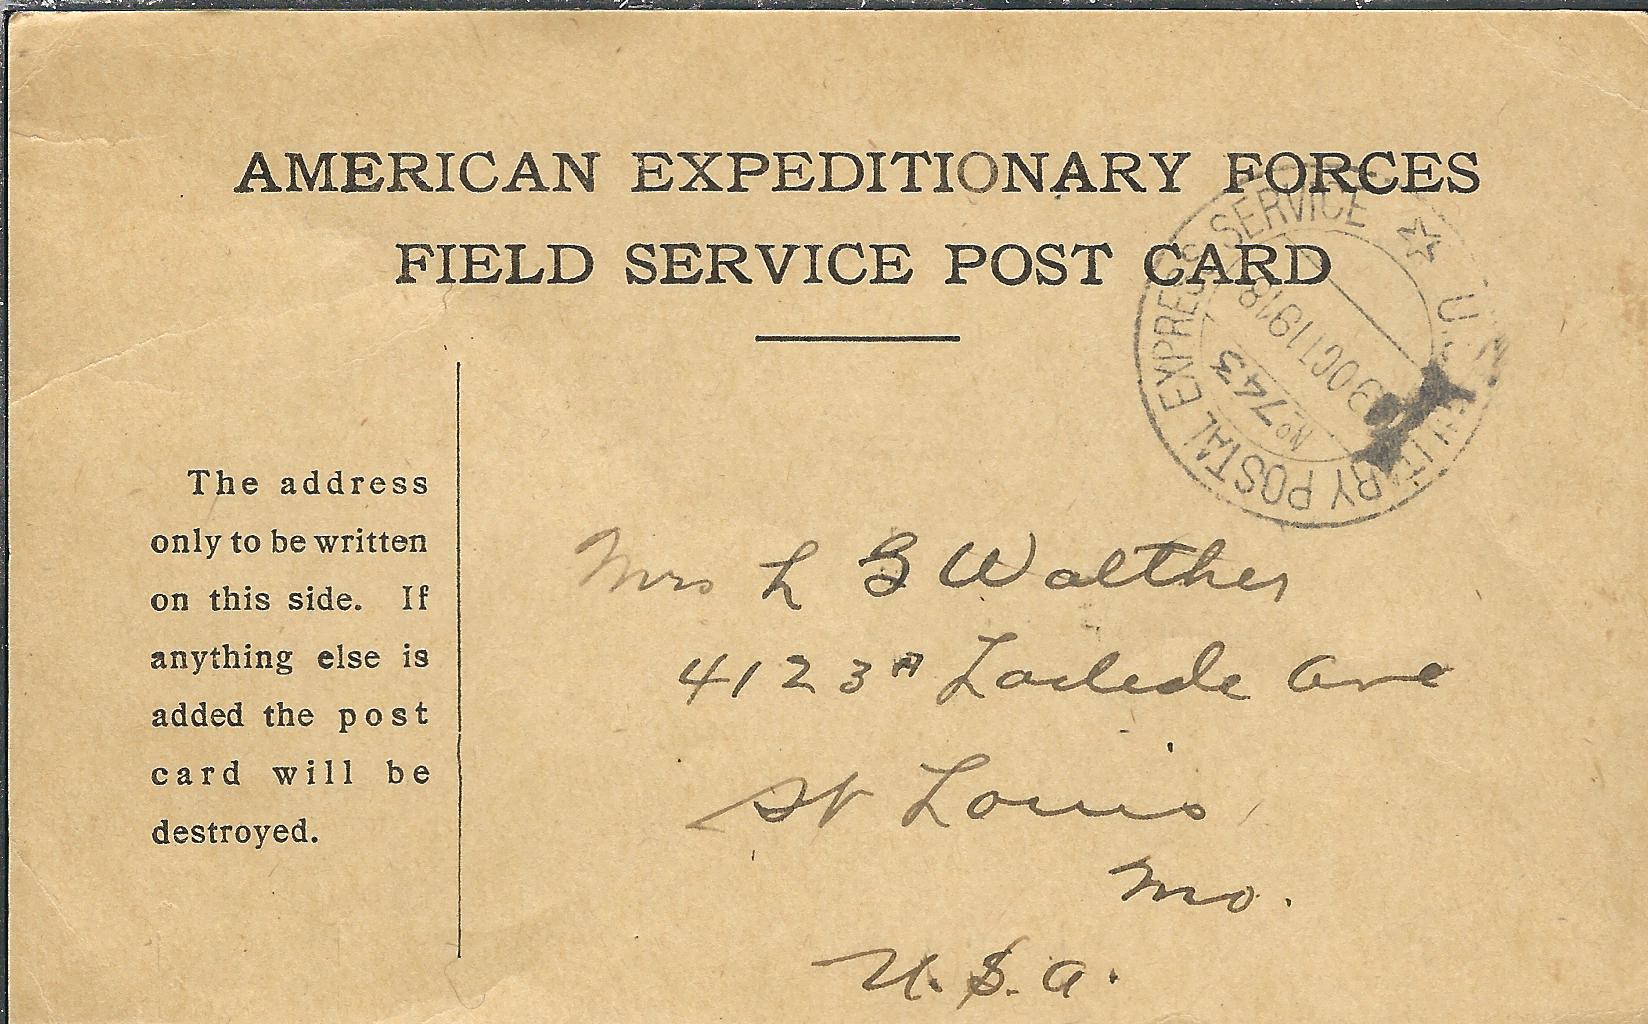 AMERICAN EXPEDITIONARY FORCES
FIELD SERVICE POST CARD
U.S. MILITARY POSTAL EXPRESS SERVICE
No 743
OCT 1 1918
The address
only to be written
on this side. If
anything else is
added the post
card will be
destroyed.
Mrs L G Walther
4123A Laclede Ave
St Louis
Mo.
U.S.A.